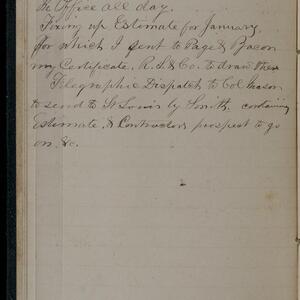 In Office all day.
Fixing up Estimate for January,
for which I sent to Page & Bacon
my Certificate, R. S. & Co. to draw
Telegraphic Dispatch to Col.
to send to St Louis by Smith, containing
Estimate, & Contractors prospect to go
on, &c.